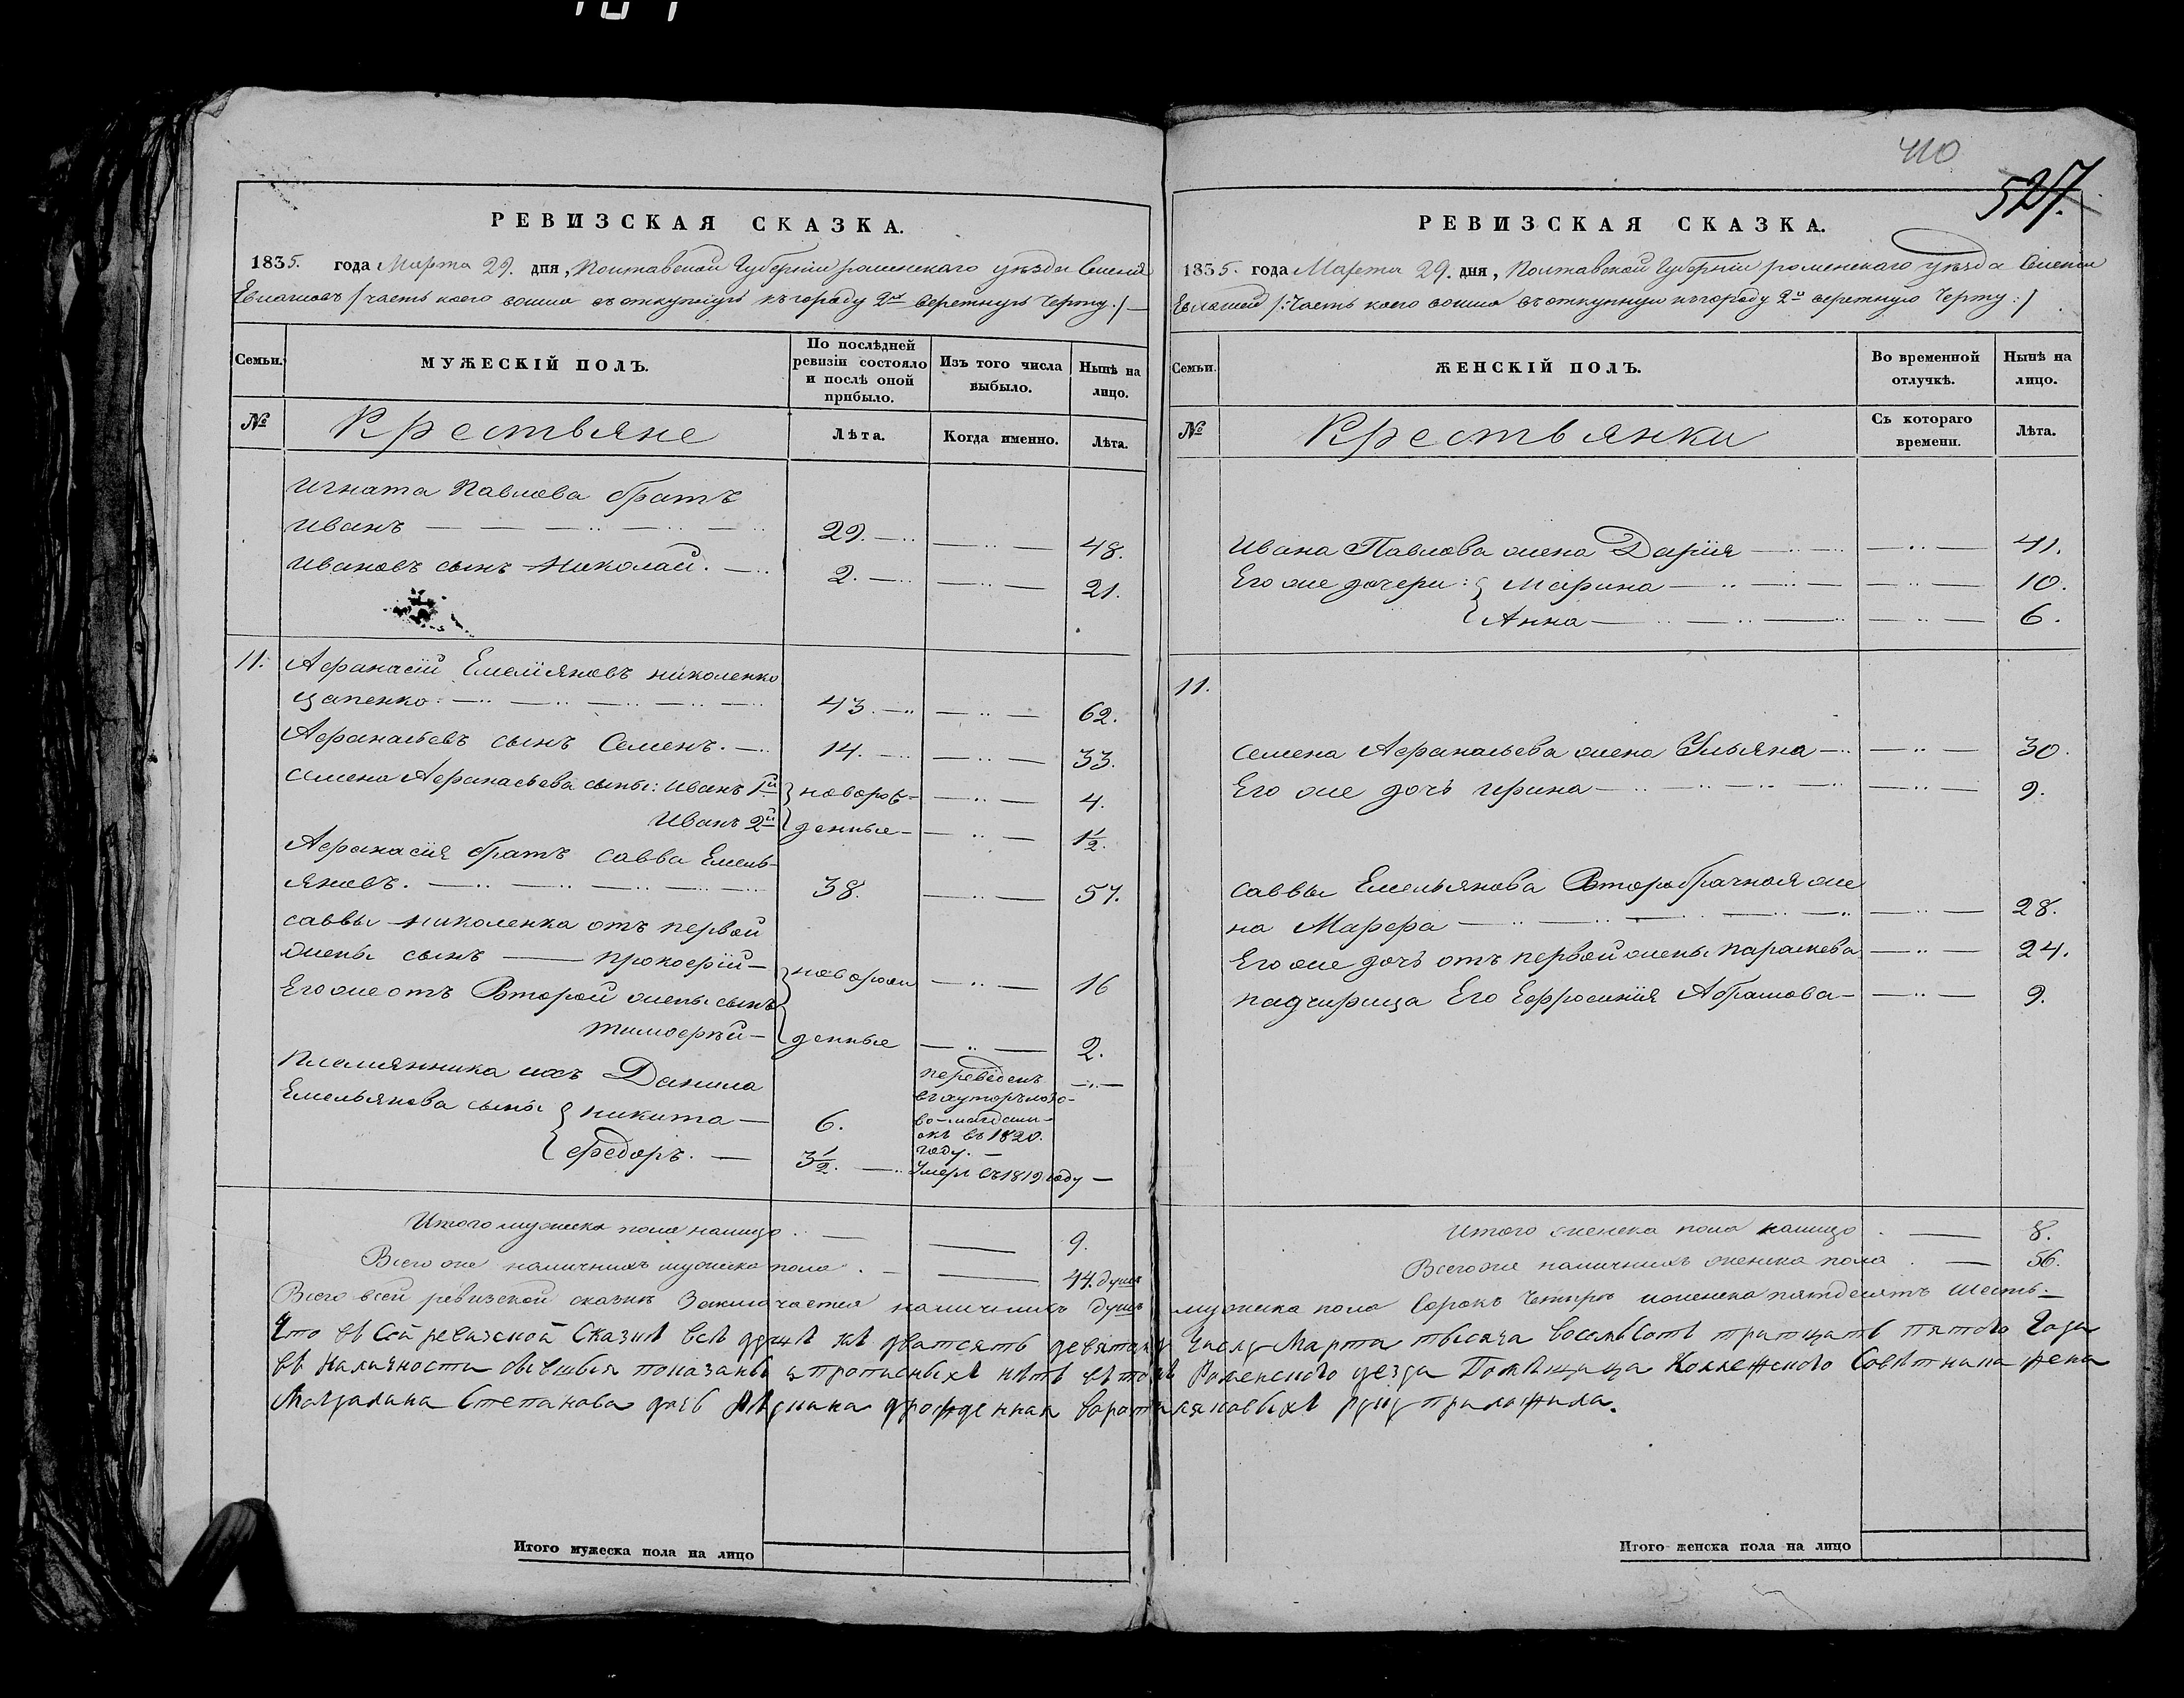 410
527.
РЕВИЗСКАЯ СКАЗКА.
1835. года Марта 29. дня, Полтавской Губернiи роменскаго уѣзда Селенiя
/часть коего вошла въ откупную къ городу 2хъ верстную Черту:/
Семьи.
МУЖЕСКIЙ ПОЛЪ.
По послѣдней ревизiи состояло и послѣ оной прибыло.
Изъ того числа выбыло.
Нынѣ на лицо.
№
Крестьяне
Лѣта.
Когда именно.
Лѣта.
Игната Павлова братъ
Иванъ 29. 48.
Ивановъ сынъ Николай. 2. 21.
11. Афанасiй Емелiяновъ николенко
цапенко. 43. 62.
Афанасьевъ сынъ Семенъ. 14. 33.
Семена Афанасьева сыны: Иванъ 1й новорож- 4.
Иванъ 2й денные 1½.
Афанасiя братъ савва Емель-
яновъ. 38. 57.
саввы николенка отъ первой
жены сынъ прокофiй новорож 16
Его же отъ Второй жены сынъ
тимофѣй денные 2.
Племянника ихъ Данила переведенъ
Емельянова сыны никита 6. въ 1820. году.
федоръ. 3½. Умеръ въ 1819 году
Итого мужеска пола налицо 9.
Всего же наличныхъ мужеска пола 44. душъ
РЕВИЗСКАЯ СКАЗКА.
1835. года Марта 29. дня, Полтавской Губернiи роменскаго уѣзда Селенiя
/:Часть коего вошла въ откупную къ городу 2хъ верстную Черту:/
Семьи.
ЖЕНСКIЙ ПОЛЪ.
Во временной отлучкѣ.
Нынѣ на лицо.
№
Крестьянки
Съ котораго времени.
Лѣта.
Ивана Павлова жена Дарiя 41.
Его же дочери: Марина 10.
Анна 6.
11.
семена Афанасьева жена Ульяна 30.
Его же дочь ирина 9.
саввы Емельянова Второбрачная же
на Марфа 28.
Его же дочь отъ первой жены параскева 24.
падчирица Его Ефросинiя Абрамова 9.
Итого женска пола налицо 8.
Всего же наличныхъ женска пола 56.
Всего всей ревизской сказки Заключается наличныхъ душъ мужиска пола Сорокъ Четыре и женска пятдесятъ Шесть.
Что въ Сей ревизской Сказкѣ всѣ души къ дватсять девятому Числу Марта тысяча восемьсотъ тритцать пятого Года
въ наличности бывшыя показаны а прописныхъ нѣтъ въ томъ Роменского уезда Помѣщица Коллежского Совѣтника жена
Степанова дочь урожденная руку приложила.
Итого мужеска пола на лицо
Итого женска пола на лицо